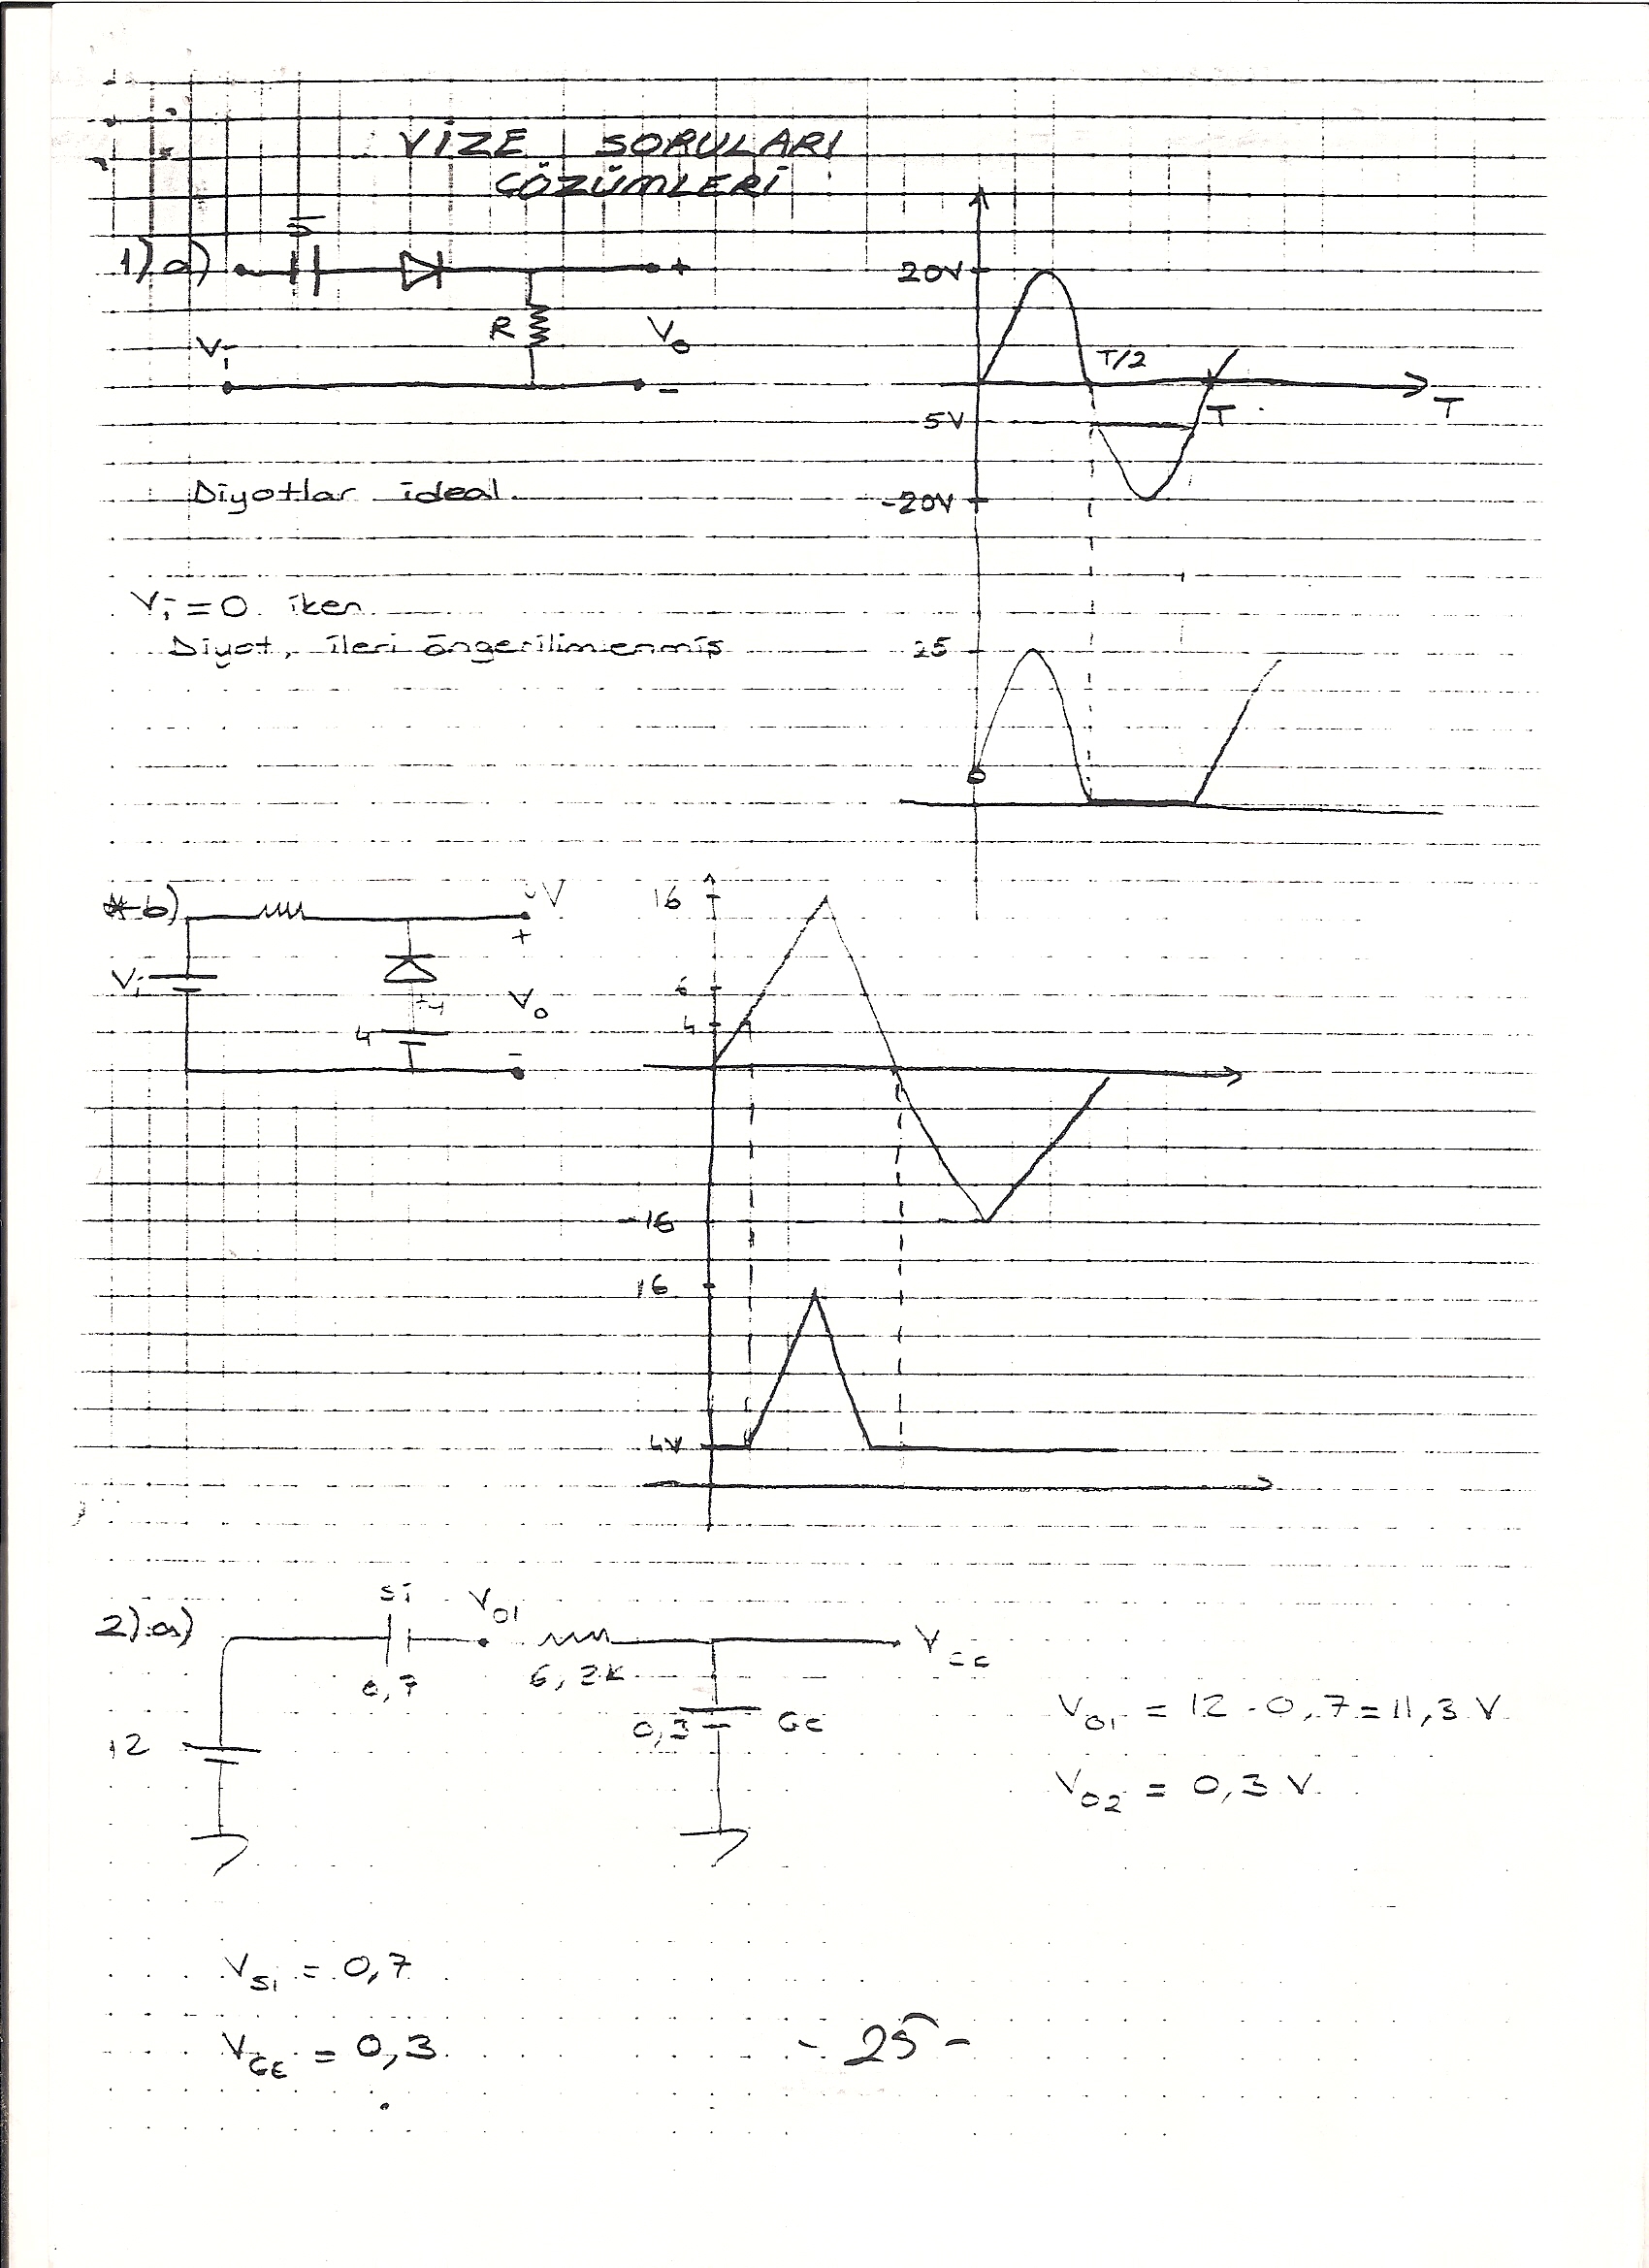 VİZE SORULARI
ÇÖZÜMLERİ
1) a)
5
+
R
Vi
Vo
-
20V
T/2
T
T
-5V
-20V
Diyotlar ideal.
Vi = 0 iken
Diyot, ileri öngerilimlenmiş
25
b)
Vi
+
Vo
4
-
16
6
4
-16
16
4V
2) a)
Si
Vo1
0,7
6,2K
12
0,3
Ge
Vo1 = 12 - 0,7 = 11,3 V
Vo2 = 0,3 V
VSi = 0,7
VGE = 0,3
- 25 -